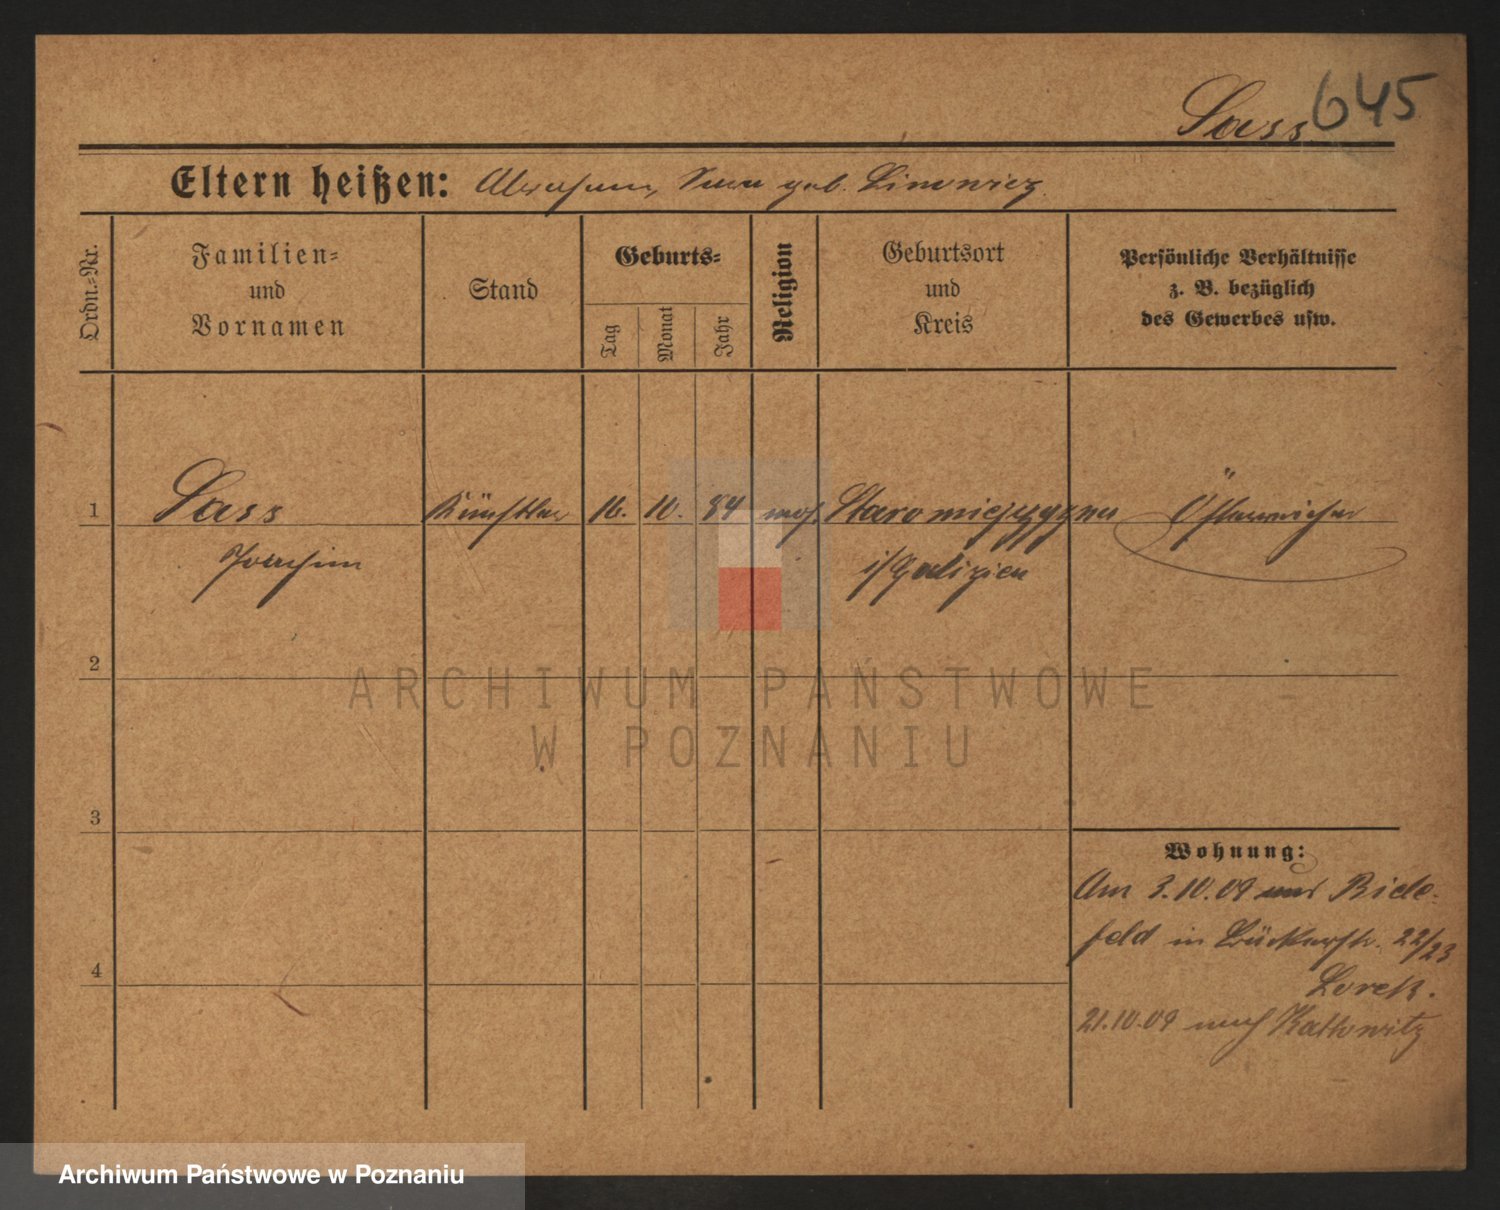 Sass
645
Eltern heißen: Abraham, Sara geb. Limowicz.
Ordn.-Nr.
Familien-
und
Vornamen
Stand
Geburts-
Tag
Monat
Jahr
Religion
Geburtsort
und
Kreis
Persönliche Verhältnisse
z. B. bezüglich
des Gewerbes usw.
1 Sass Künstler 16. 10. 84 mos. Österreicher
Joachim i/Galizien
2
3
4
Wohnung:
Am 3.10.09 aus Biele-
feld in Bäckerstr. 22/23
21.10.09 nach Kattowitz
ARCHIWUM PAŃSTWOWE
W POZNANIU
Archiwum Państwowe w Poznaniu